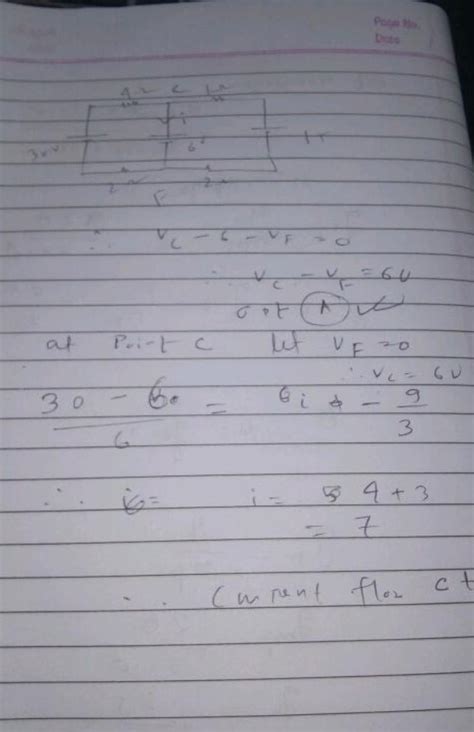 Page No.
Date
4Ω C 1Ω
i
30V 6V
2Ω 2Ω
F
∴ V_C - 6 - V_F = 0
∴ V_C - V_F = 6V
A
at Point C Let V_F = 0
∴ V_C = 6V
30 - 6
= - 9
6 3
∴ i = 4 + 3
= 7
∴ Current flow